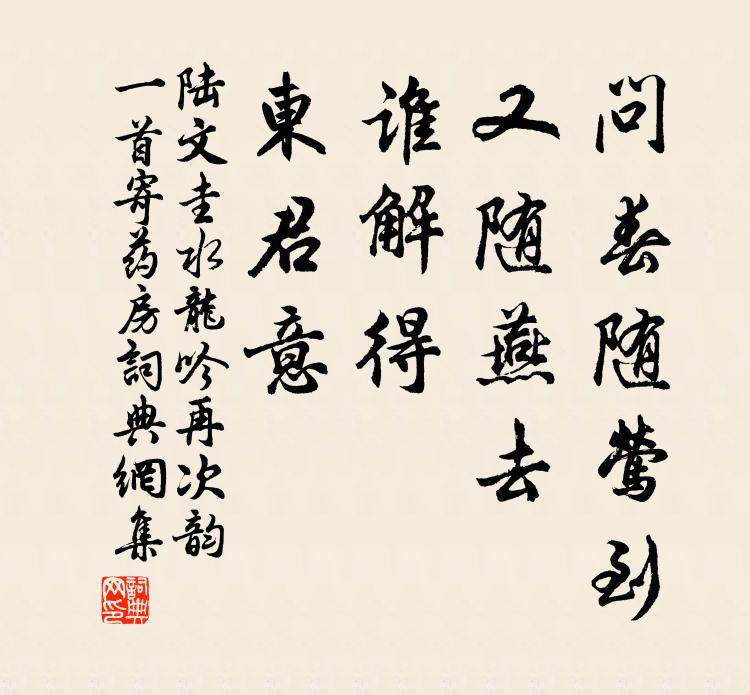 问春随莺到
又随燕去
谁解得
東君意
陆文圭水龍吟再次韵
一首寄药房詞典網集
詞典网印